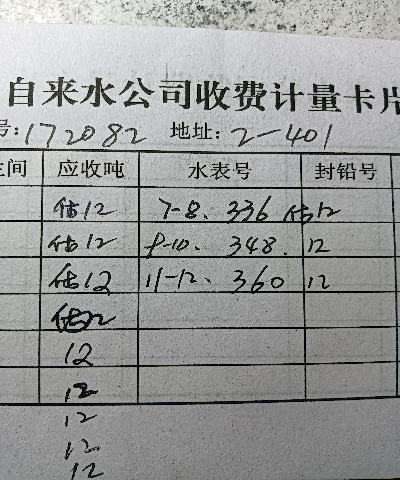 自来水公司收费计量卡片
号:172082 地址:2-401
间 应收吨 水表号 封铅号
估12 7-8. 336 估12
估12 9-10. 348. 12
估12 11-12. 360 12
估12
12
12
12
12
12